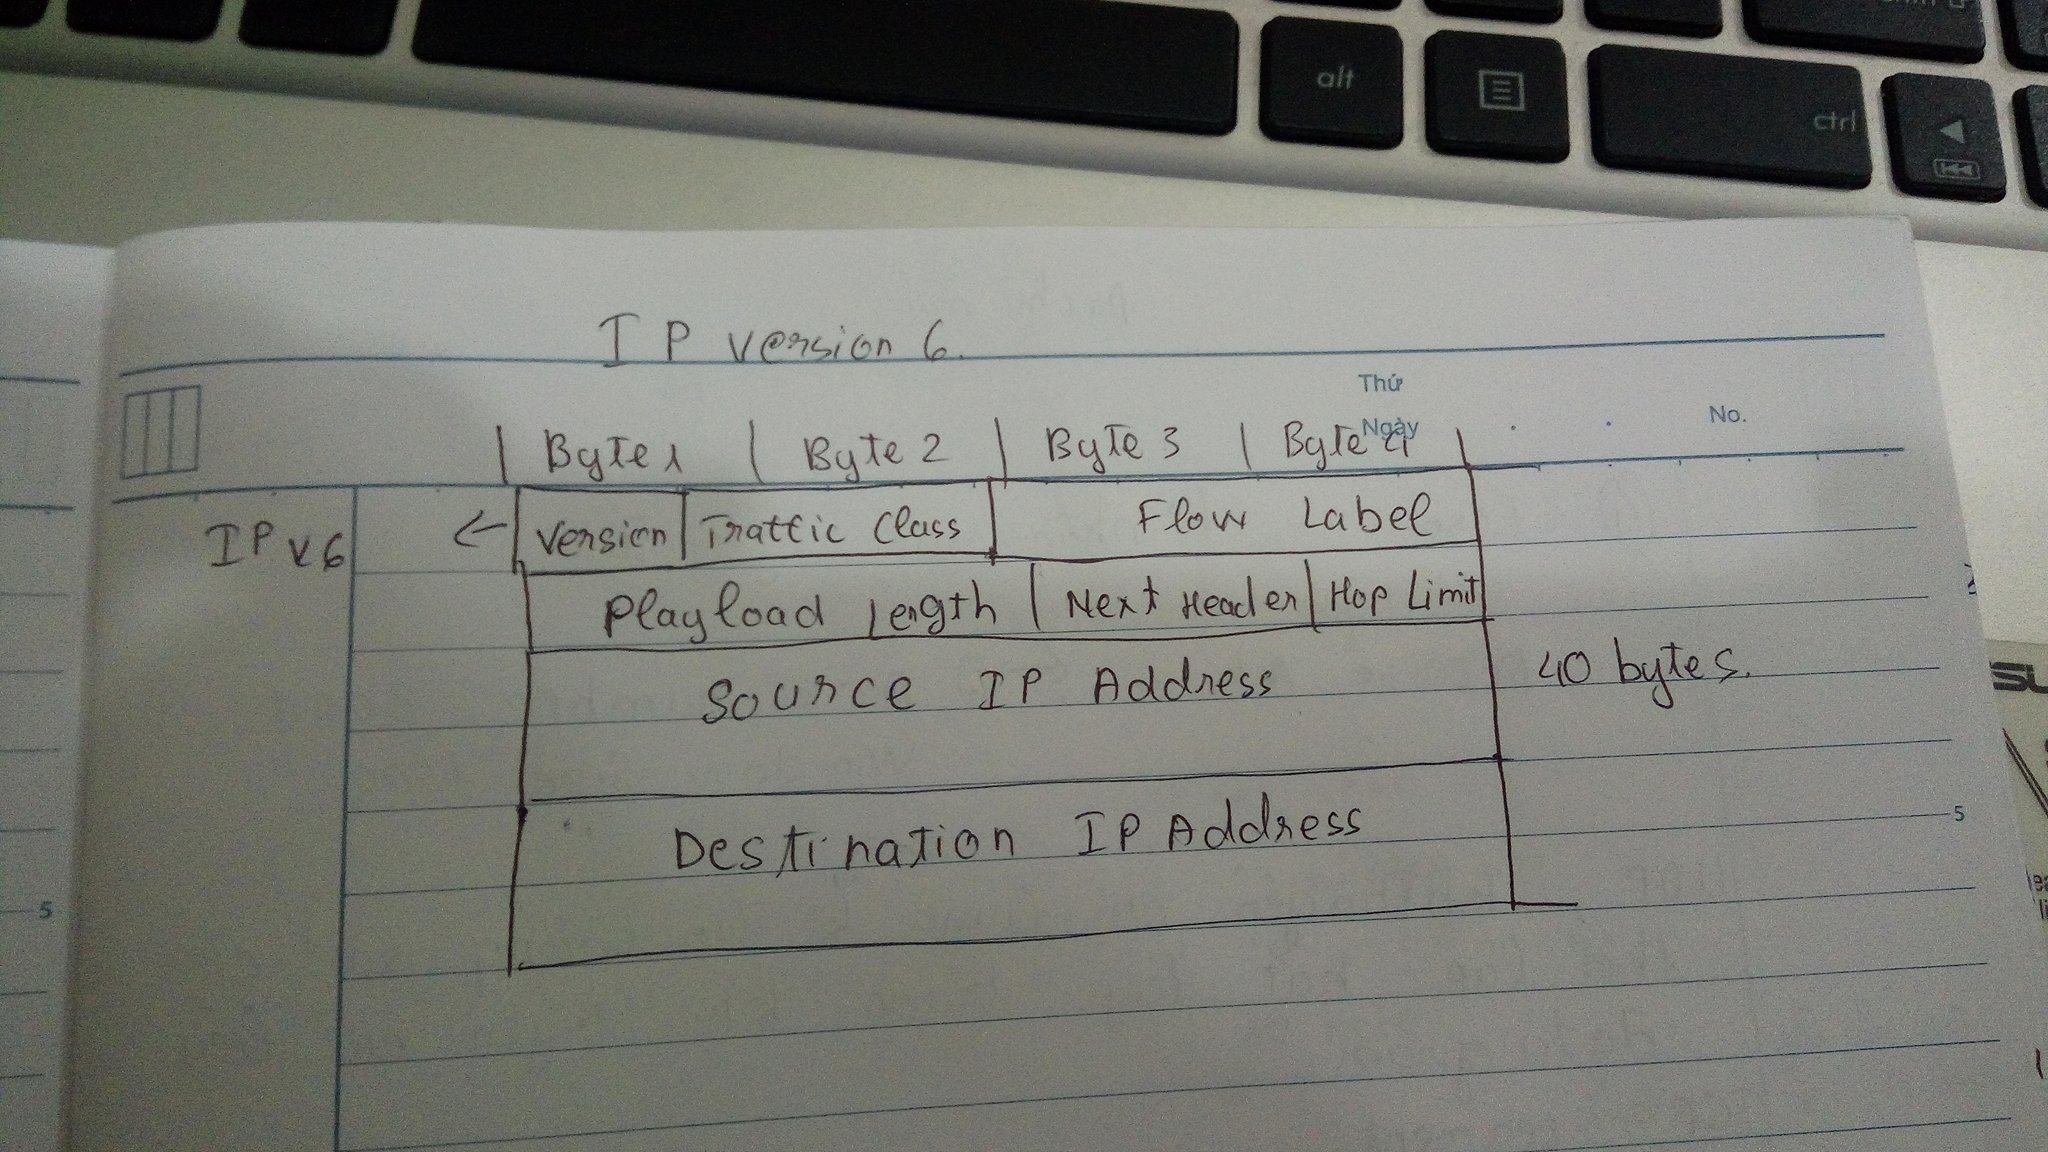 alt
ctrl
IP version 6.
Thứ
Ngày
No.
Byte 1 | Byte 2 | Byte 3 | Byte 4
IPv6
← Version | Traffic Class | Flow Label
Playload Length | Next Header | Hop Limit
Source IP Address
40 bytes.
Destination IP Address
5
5